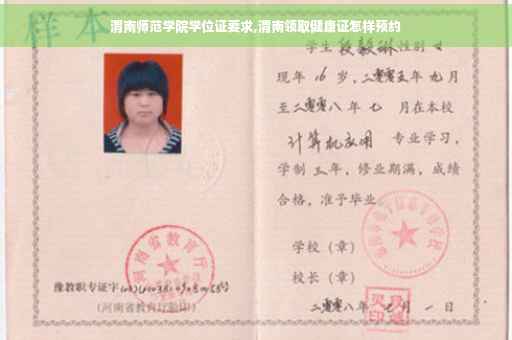 样本
渭南师范学院学位证要求,渭南领取健康证怎样预约
学生 段毅琳 性别 女
现年 16 岁,二零零五年 九 月
至二零零八年 七 月在本校
计算机应用 专业学习,
学制 三 年,修业期满,成绩
合格,准予毕业
学校(章)
校长(章)
二零零八年 月 一 日
河南省教育厅
豫教职专证字
(河南省教育厅验印)